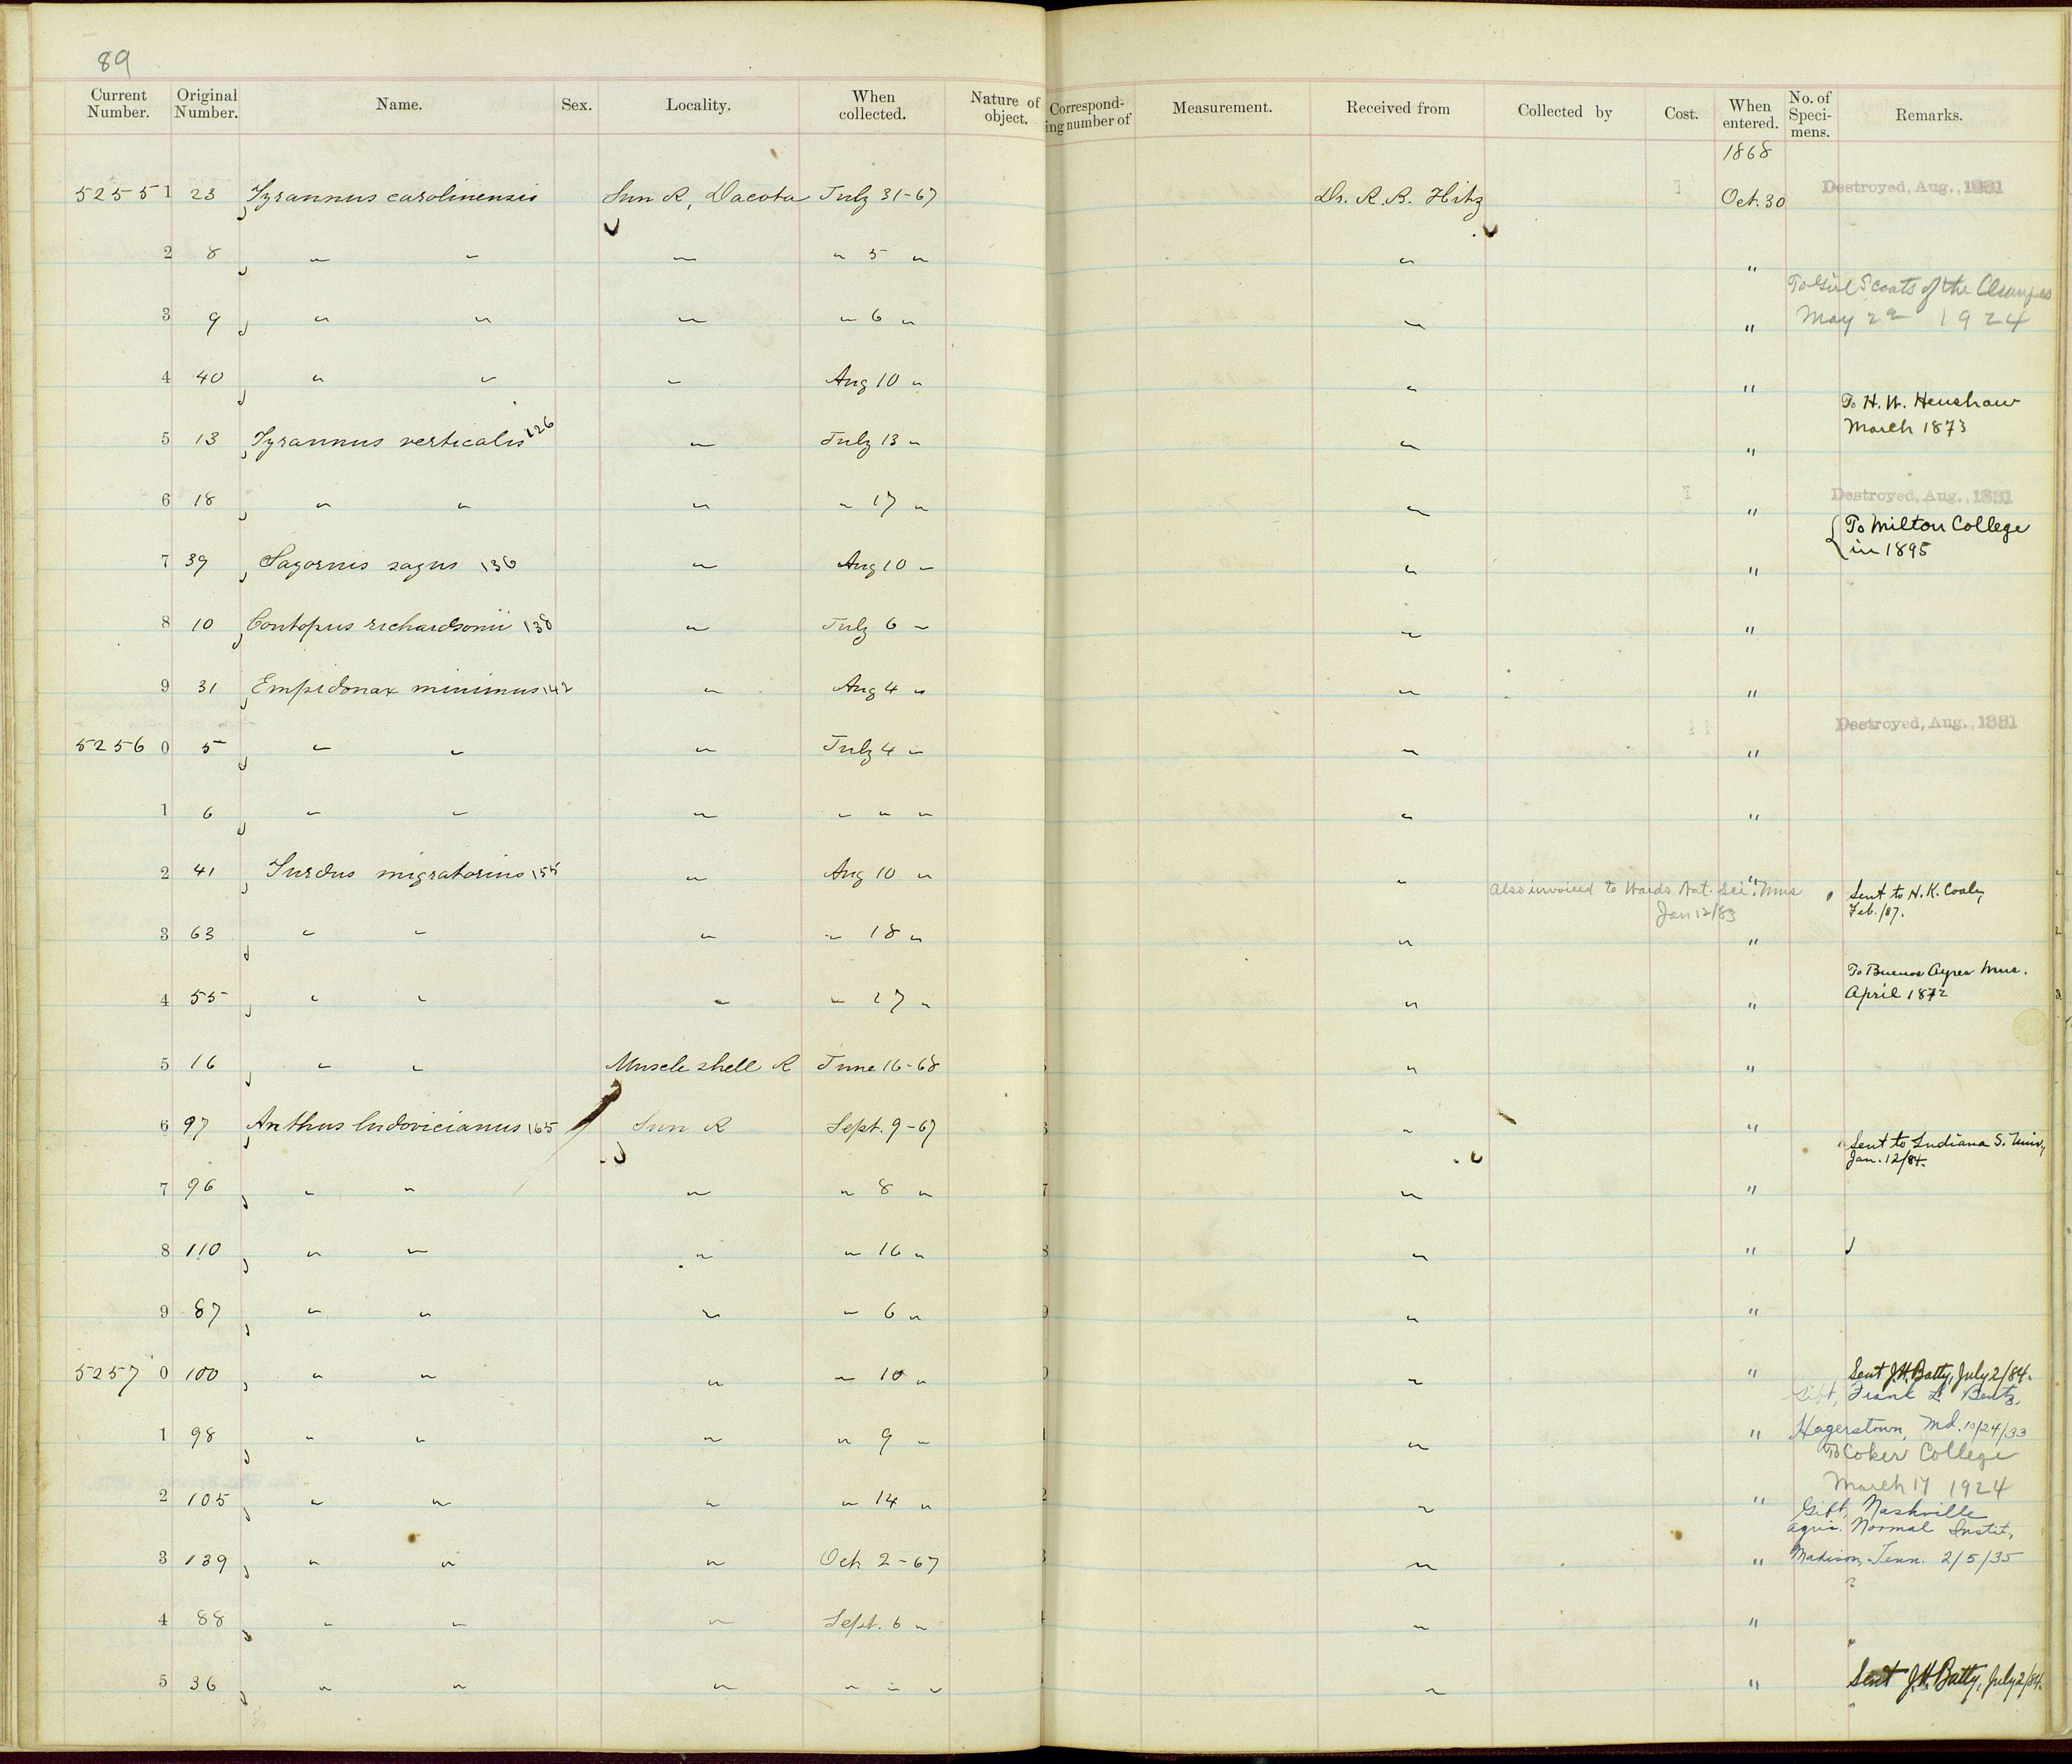 89
Current Number. Original Number. Name. Sex. Locality. When collected. Nature of object. Corresponding number of Measurement. Received from Collected by Cost. When entered. No. of Specimens. Remarks.
1868
52551 23 Tyrannus carolinensis Sun R, Dacota July 31-67 Dr. R. B. Hitz Oct. 30 Destroyed, Aug., 1881
2 8 " " " " 5 " " "
To Girl Scouts of the
3 9 " " " " 6 " " " May 22 1924
4 40 " " " Aug 10 " " "
To H. W. Henshaw
March 1873
5 13 Tyrannus verticalis 126 " July 13 " " "
6 18 " " " " 17 " " " Destroyed, Aug., 1881
{To Milton College
in 1895
7 39 Sayornis sayus 136 " Aug 10 " " "
8 10 Contopus richardsonii 138 " July 6 " " "
9 31 Empidonax minimus 142 " Aug 4 " " "
52560 5 " " " July 4 " " " Destroyed, Aug., 1881
1 6 " " " " " " " "
2 41 Turdus migratorius 155 " Aug 10 " " "
Also invoiced to Wards Nat. Sci. Mus Sent to H. K. Coale,
Jan 12/83 Feb. /87.
3 63 " " " " 18 " " "
To Buenos Ayres Mus.
4 55 " " " " 17 " " " April 1872
5 16 " " Muscle shell R June 16-68 " "
6 97 Anthus ludovicianus 165 Sun R Sept. 9-67 " "
Sent to Indiana S. Univ,
Jan. 12/84.
7 96 " " " " 8 " " "
8 110 " " " " 16 " " "
9 87 " " " " 6 " " "
52570 100 " " " " 10 " " " Sent J.H. Batty, July 2/84.
Gift, Frank L. Bentz,
1 98 " " " " 9 " " " Hagerstown, Md. 10/24/33
To Coker College
March 17 1924
2 105 " " " " 14 " " "
Gift, Nashville
Agric. Normal Instit,
3 139 " " " Oct 2-67 " " Madison, Tenn. 2/5/35
4 88 " " " Sept. 6 " " "
5 36 " " " " " " " " Sent J.H. Batty, July 2/84.